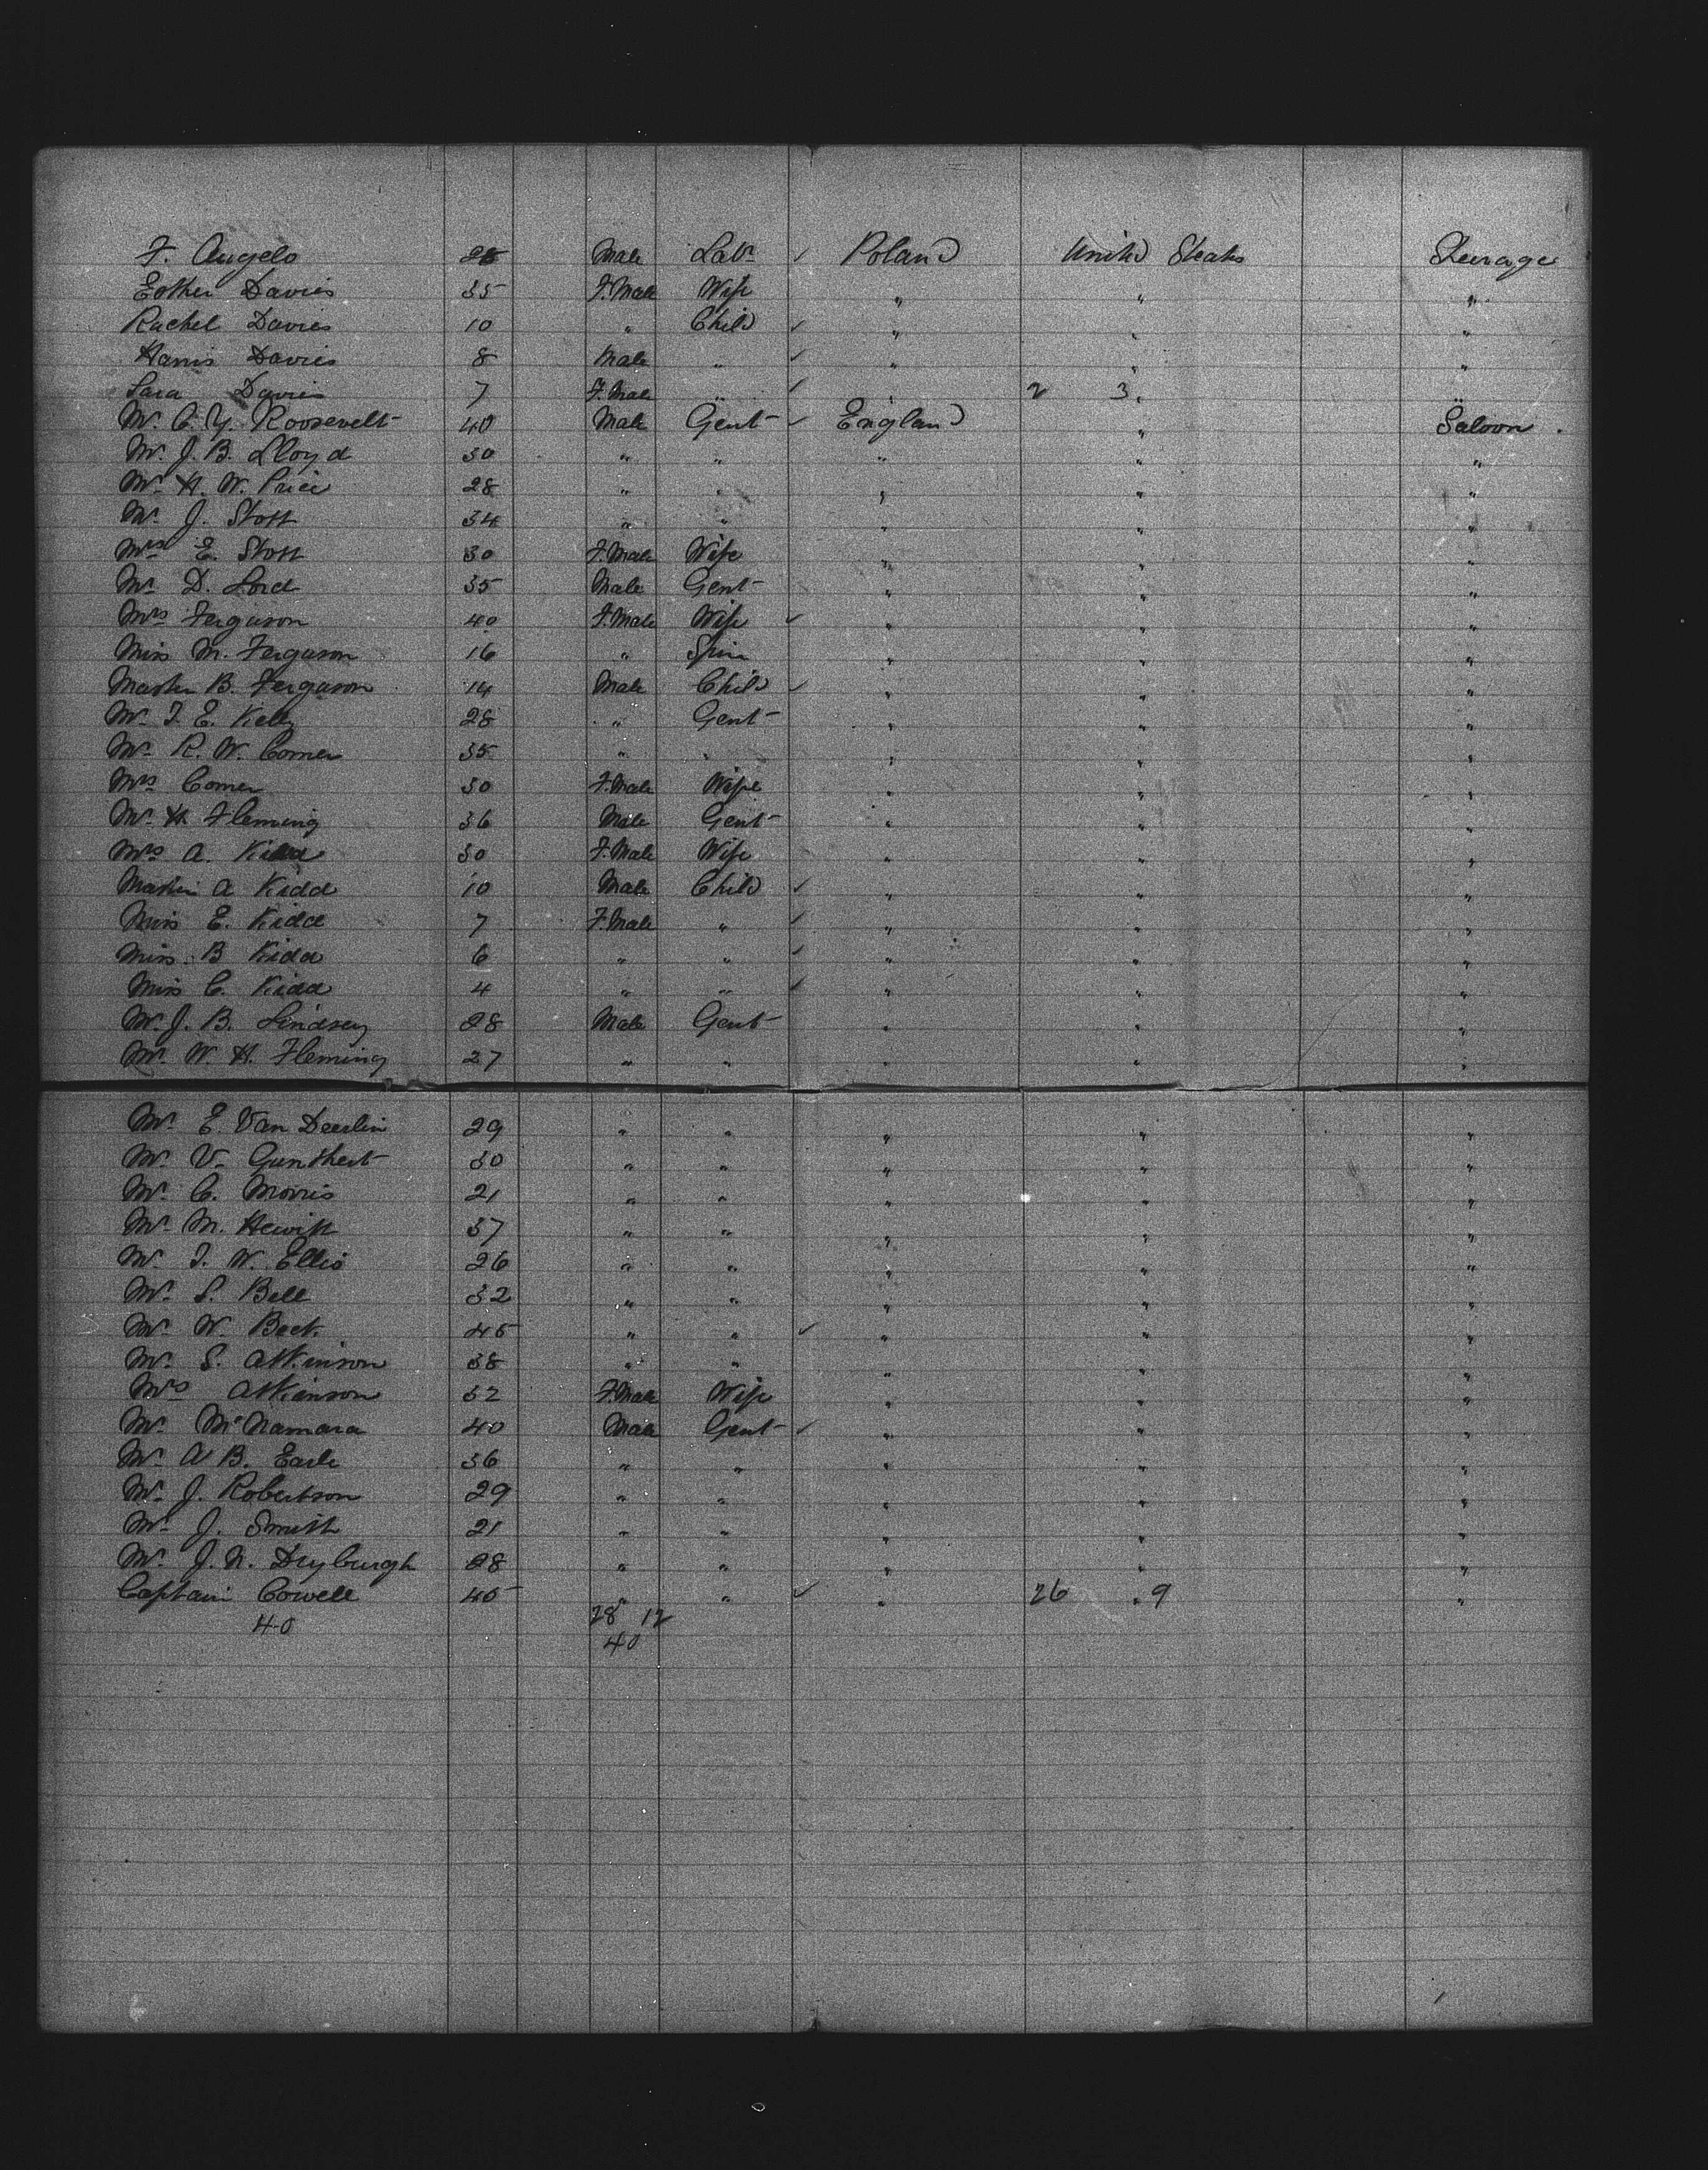 F. Angelo 25 Male Labr ✓ Poland United Steaks Steerage
Esther Davies 35 F.Male Wife " " "
Rachel Davies 10 " Child ✓ " " "
Harris Davies 8 Male " ✓ " " "
Sara Davies 7 F.Male " ✓ 2 3 " "
Mr C. Y. Roosevelt 40 Male Gent ✓ England " Saloon
Mr J. B. Lloyd 30 " " " " "
Mr H. W. Price 28 " " " " "
Mr J. Stott 34 " " " " "
Mrs E. Stott 30 F.Male Wife " " "
Mr D. Lord 35 Male Gent " " "
Mrs Ferguson 40 F.Male Wife ✓ " " "
Miss M. Ferguson 16 " Spin " " "
Master B. Ferguson 14 Male Child ✓ " " "
Mr T. E. Kelly 28 " Gent " " "
Mr R. W. Comer 35 " " " " "
Mrs Comer 30 F.Male Wife " " "
Mr H Fleming 36 Male Gent " " "
Mrs A. Kidd 30 F.Male Wife " " "
Master A Kidd 10 Male Child ✓ " " "
Miss E. Kidd 7 F.Male " ✓ " " "
Miss B Kidd 6 " " ✓ " " "
Miss C. Kidd 4 " " ✓ " " "
Mr J. B. Lindsey 28 Male Gent " " "
Mr W. H. Fleming 27 " " " " "
Mr E. Van Deerlin 29 " " " " "
Mr V. Gunthert 30 " " " " "
Mr C. Morris 21 " " " " "
Mr M. Hewitt 37 " " " " "
Mr T. W. Ellis 26 " " " " "
Mr S. Bell 32 " " " " "
Mr W. Beck 45 " " ✓ " " "
Mr S. Atkinson 38 " " " " "
Mrs Atkinson 32 F.Male Wife " " "
Mr McNamara 40 Male Gent ✓ " " "
Mr A B. Earle 36 " " " " "
Mr J. Robertson 29 " " " " "
Mr J. Smith 21 " " " " "
Mr J. N. Dryburgh 28 " " " " "
Captain Cowell 45 " " ✓ " 26 " 9 "
40 28 12
40